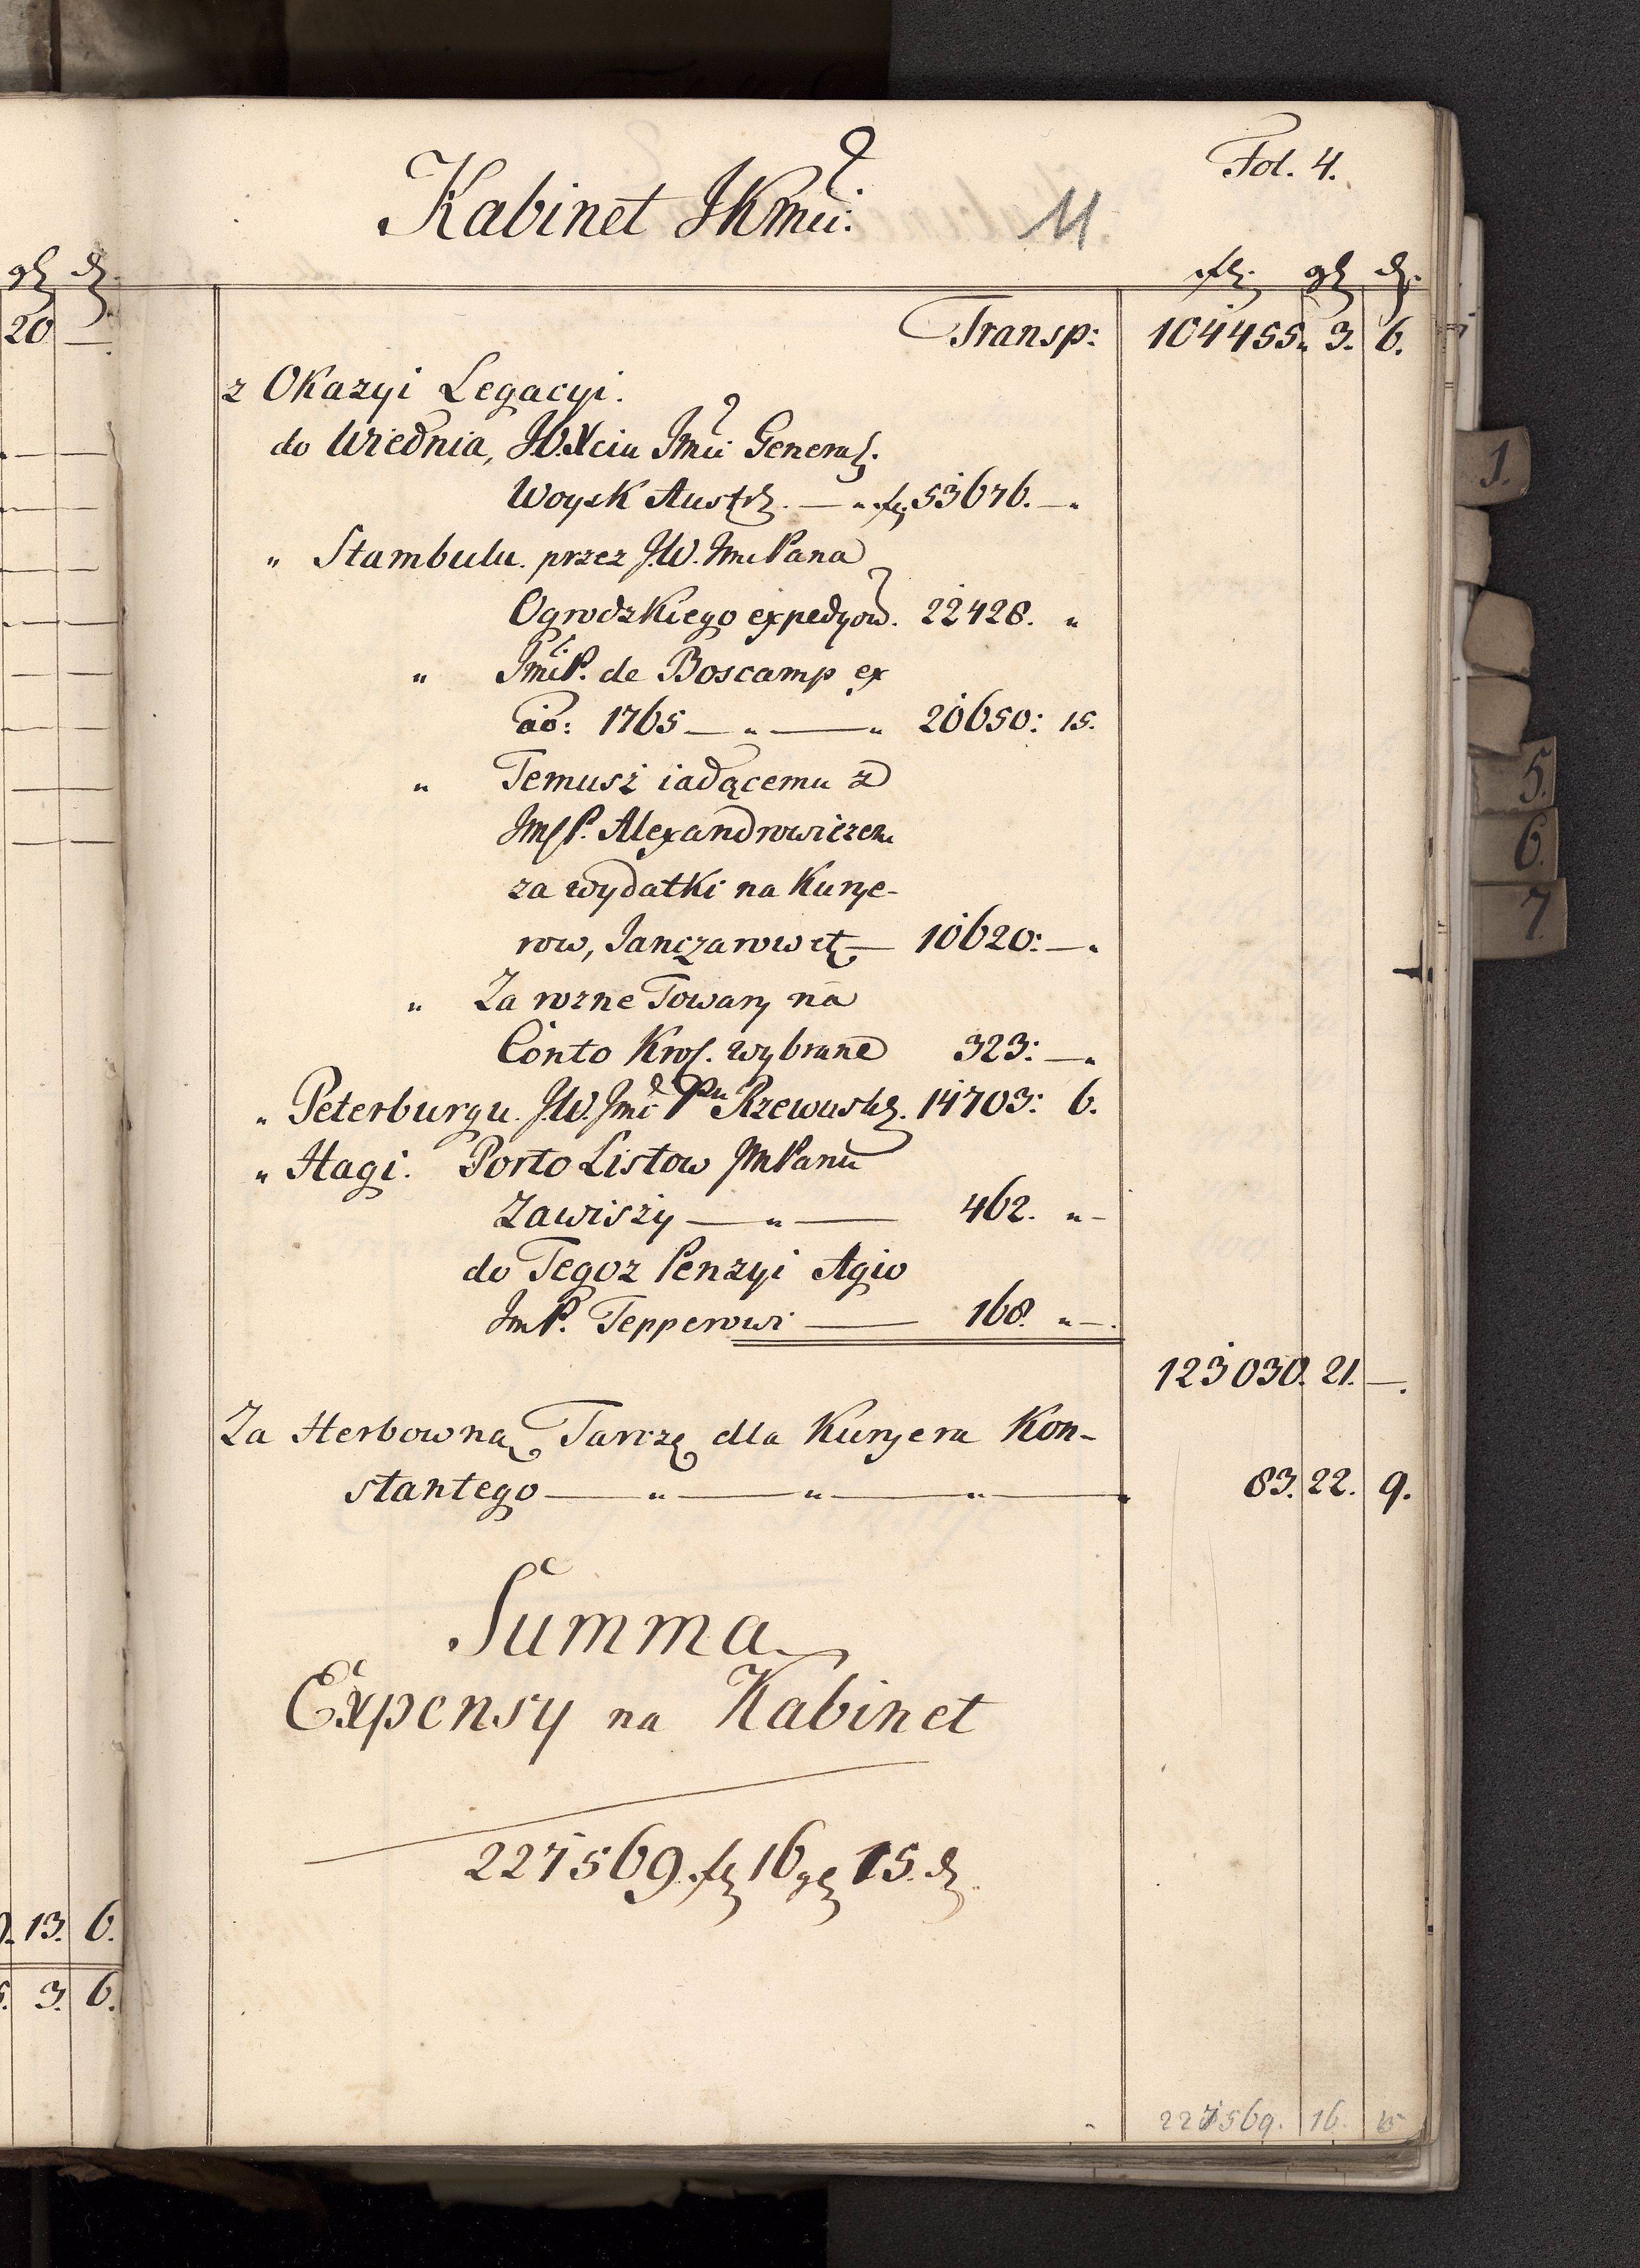 Fol. 4.
Kabinet JKmci:
11.
fl. gr. d.
gr. d.
20 —
Transp: 104455. 3. 6.
z Okazyi Legacyi.
do Wiednia, J.O. Xciu Jmci General.
Woysk Austr. — " fl. 53676. — "
" Stambulu. przez J.W. Jmc Pana
Ogrodzkiego expedyow. 22428. "
" JmciP. de Boscamp ex
ao: 1765 — " — " 20650: 15.
" Temusż iadącemu z
JmcP. Alexandrowiczem
za wydatki na Kurye-
row, Janczarow etc — 10620: — "
" Za rozne Towary na
Conto Krol. wybrane 323: — "
" Peterburgu. J.W. Jmc Pu Rzewusk. 14703: 6.
" Hagi. Porto Listow JmPanu
Zawiszy — " — 462. " —
do Tegoz Penzyi Agio
JmP. Tepperowi — 168. " — .
123030. 21. — .
Za Herbowną Tarczę dla Kuryera Kon-
stantego — " — " — " — 83. 22. 9.
Summa
Expensy na Kabinet
227569. fl. 16 gr. 15. d.
13. 6.
3. 6.
227569. 16. 15
1.
5.
6.
7.